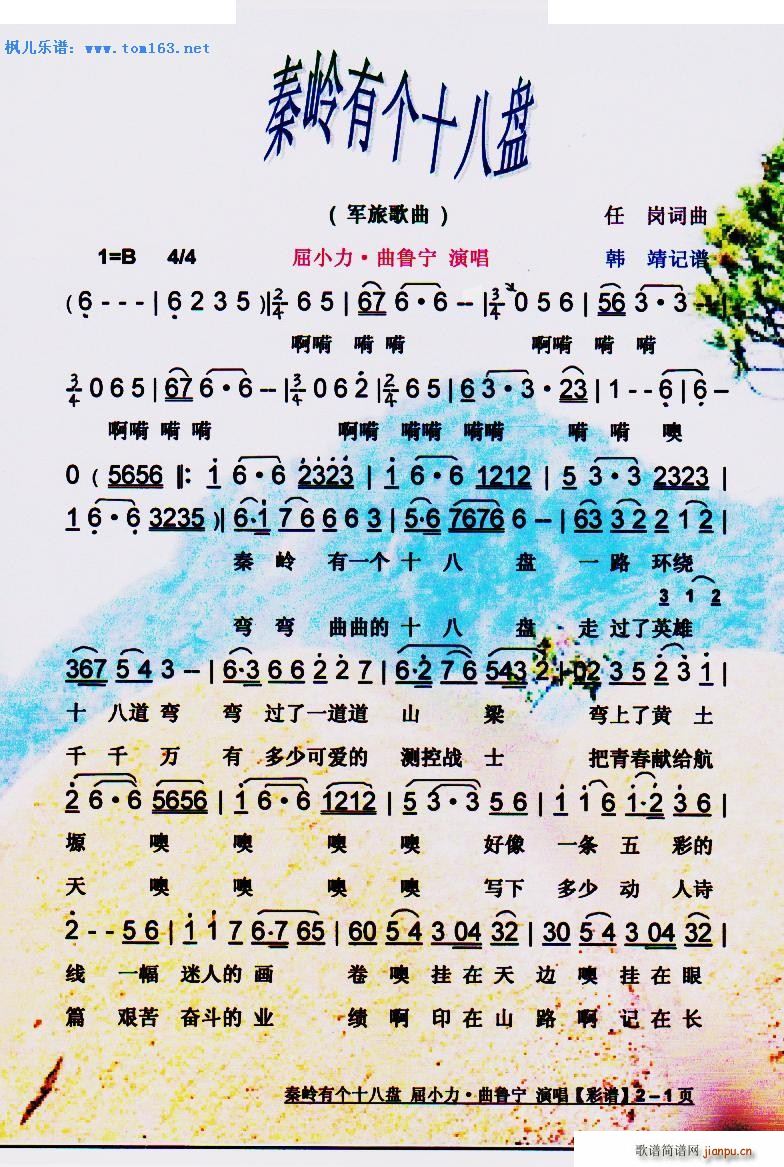 枫儿乐谱：www.tom163.net
秦岭有个十八盘
（ 军旅歌曲 ） 任 岗词曲
1=B 4/4 屈小力·曲鲁宁 演唱 韩 靖记谱
( 6 - - - | 6 2 3 5 ) | 2/4 6 5 | 67 6·6 - - | 3/4 0 5 6 | 56 3·3 - - |
啊嗬 嗬 嗬 啊嗬 嗬 嗬
3/4 0 6 5 | 67 6·6 - - | 3/4 0 6 2 | 2/4 6 5 | 6 3·3·23 | 1 - - 6 | 6 -
啊嗬 嗬 嗬 啊嗬 嗬嗬 嗬嗬 嗬 嗬 噢
0 ( 5656 ‖: 1 6·6 2323 | 1 6·6 1212 | 5 3·3 2323 |
1 6·6 3235 ) | 6·1 7 6 6 6 3 | 5·6 7676 6 - - | 63 3 2 2 1 2 |
秦 岭 有一个 十 八 盘 一 路 环绕
3 1 2
弯 弯 曲曲的 十 八 盘 走 过了 英雄
367 5 4 3 - - | 6·3 6 6 2 2 7 | 6·2 7 6 543 2 - | 02 3 5 2 3 1 |
十 八道 弯 弯 过了 一道道 山 梁 弯上了 黄 土
千 千 万 有 多少可爱的 测控战 士 把青春献给航
2 6·6 5656 | 1 6·6 1212 | 5 3·3 5 6 | 1 1 6 1·2 3 6 |
塬 噢 噢 噢 噢 好像 一条 五 彩的
天 噢 噢 噢 噢 写下 多少 动 人诗
2 - - 5 6 | 1 1 7 6·7 65 | 60 5 4 3 04 32 | 30 5 4 3 04 32 |
线 一幅 迷人的 画 卷 噢 挂 在 天 边 噢 挂 在 眼
篇 艰苦 奋斗的 业 绩 啊 印 在 山 路 啊 记 在 长
秦岭有个十八盘 屈小力·曲鲁宁 演唱【彩谱】2－1页
歌谱简谱网
jianpu.cn